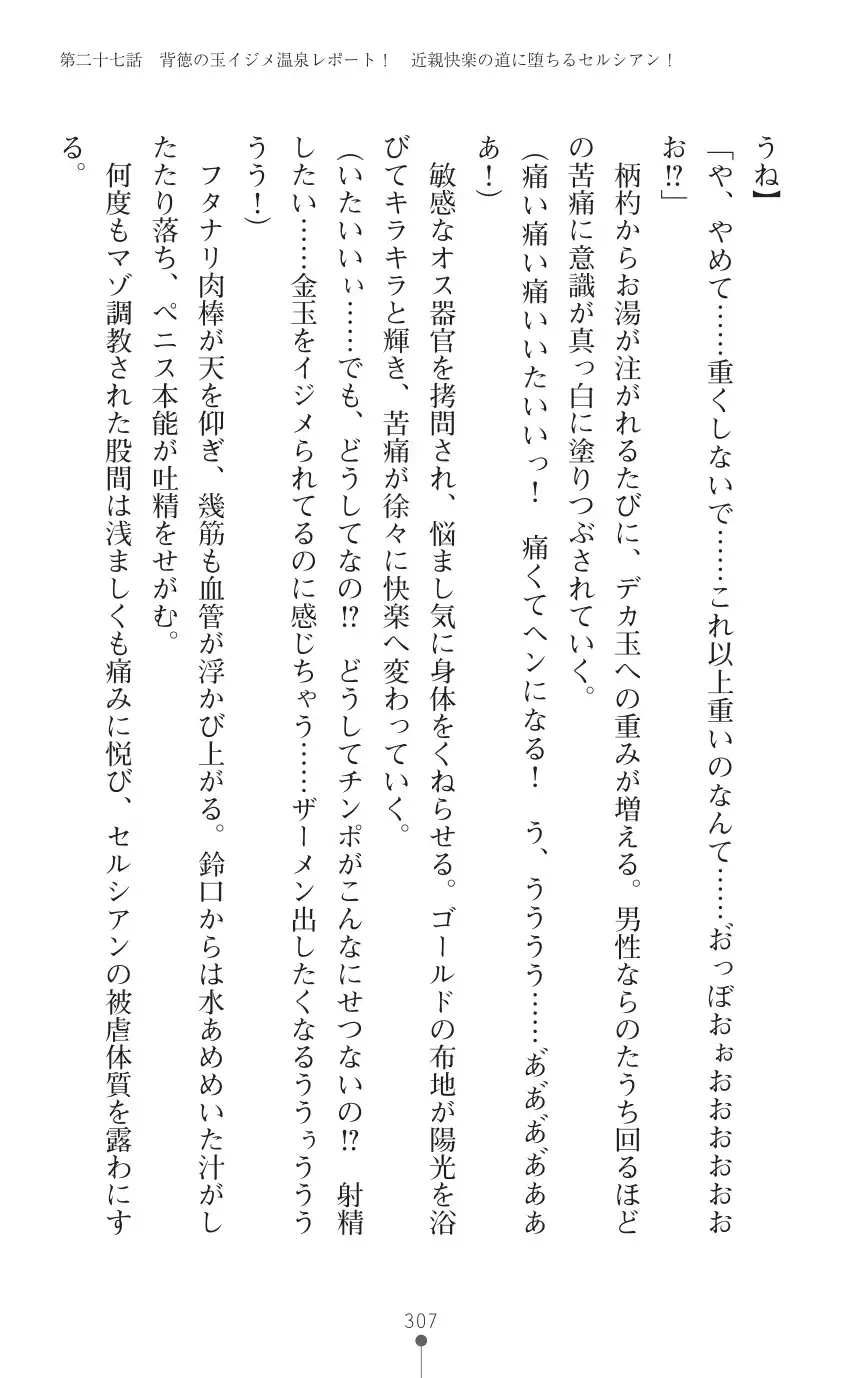 第二十七話　背徳の玉イジメ温泉レポート！　近親快楽の道に堕ちるセルシアン！
うね】
「や、やめて……重くしないで……これ以上重いのなんて……お゙っぼおぉおおおおおお
お!?」
　柄杓からお湯が注がれるたびに、デカ玉への重みが増える。男性ならのたうち回るほど
の苦痛に意識が真っ白に塗りつぶされていく。
（痛い痛い痛いいたいいっ！　痛くてヘンになる！　う、うううう……あ゙あ゙あ゙あ゙ああ
あ！）
　敏感なオス器官を拷問され、悩まし気に身体をくねらせる。ゴールドの布地が陽光を浴
びてキラキラと輝き、苦痛が徐々に快楽へ変わっていく。
（いたいいぃ……でも、どうしてなの!?　どうしてチンポがこんなにせつないの!?　射精
したい……金玉をイジメられてるのに感じちゃう……ザーメン出したくなるううぅううう
うう！）
　フタナリ肉棒が天を仰ぎ、幾筋も血管が浮かび上がる。鈴口からは水あめめいた汁がし
たたり落ち、ペニス本能が吐精をせがむ。
　何度もマゾ調教された股間は浅ましくも痛みに悦び、セルシアンの被虐体質を露わにす
る。
307